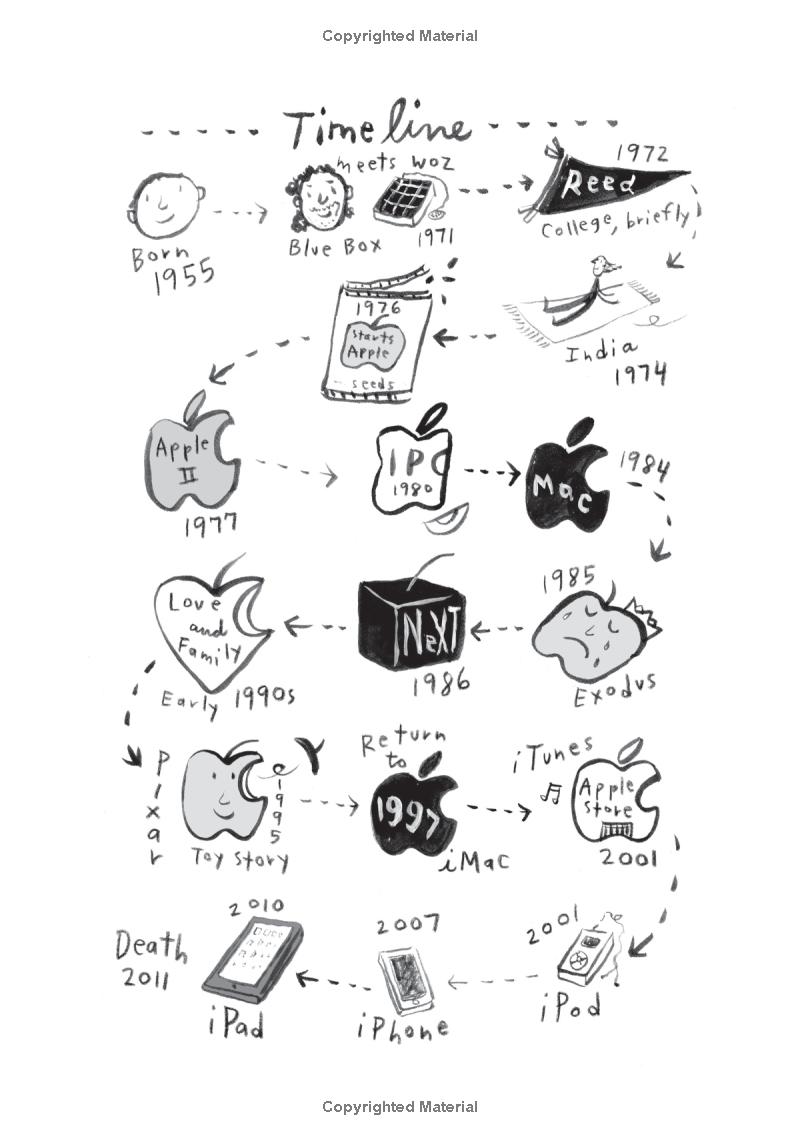 Copyrighted Material
Timeline
meets woz
Born
1955
Blue Box
1971
1972
Reed
College, briefly
India
1974
1976
Starts
Apple
seeds
Apple
II
1977
IPO
1980
Mac
1984
1985
Exodus
NeXT
1986
Love
and
Family
Early 1990s
Pixar
1995
Toy Story
Return
to
1997
iMac
iTunes
Apple
Store
2001
2001
iPod
2007
iPhone
2010
iPad
Death
2011
Copyrighted Material